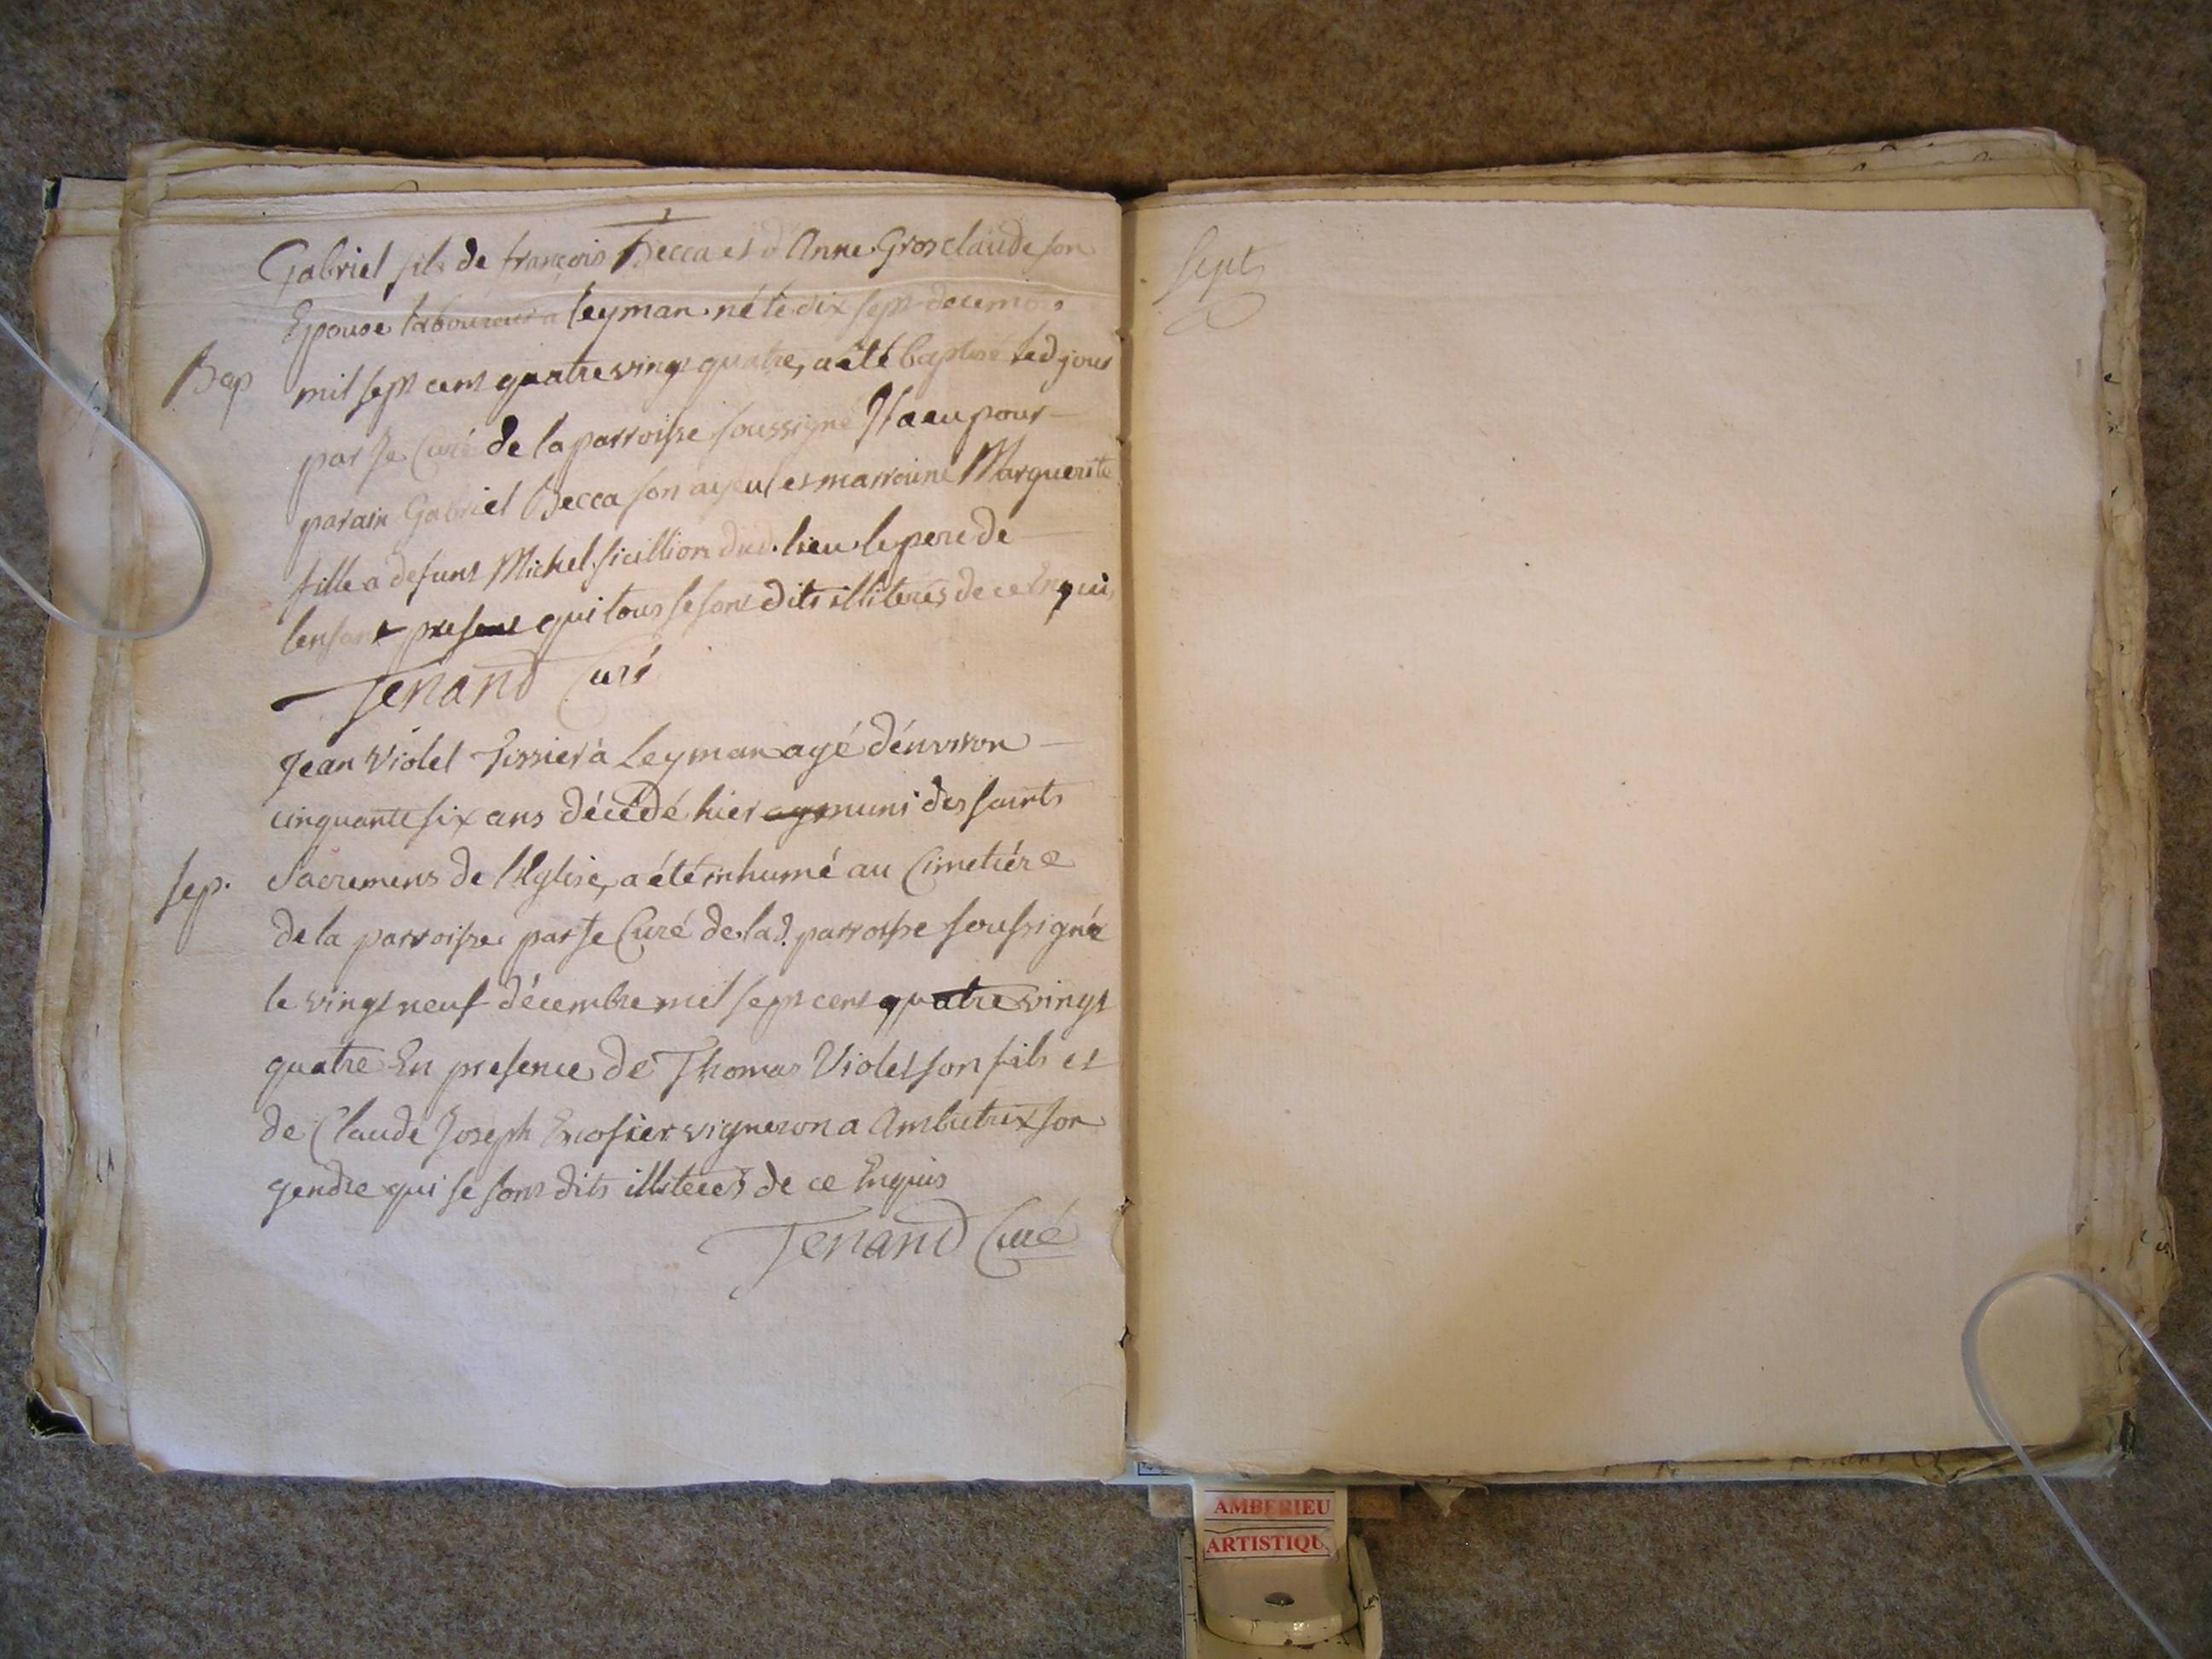 Gabriel fils de françois Becca et d'Anne Grosclaude son
Epouse laboureur a leyman né le dix sept decembre
Bap
mil sept cent quatre vingt quatre, a été baptisé led jour
par Je Curé de la parroisse soussigné Il a eu pour
parain Gabriel Becca son ayeul et marraine Marguerite
fille a defunt Michel dud. lieu le pere de
lenfant present qui tous se sont dits illiterés de ce Enquis
Tenand Curé
Jean Violet Tissier à Leyman agé d'environ
cinquante six ans décédé hier muni des saints
sep.
Sacremens de l'Eglise, a été inhumé au Cimetiére
de la parroisse par Je Curé de lad. parroisse soussigné
le vingt neuf décembre mil sept cent quatre vingt
quatre En presence de Thomas Violet son fils et
de Claude Joseph vigneron a Ambutrix son
gendre qui se sont dits illiterés de ce Enquis
Tenand Curé
Sept
AMBERIEU
ARTISTIQU